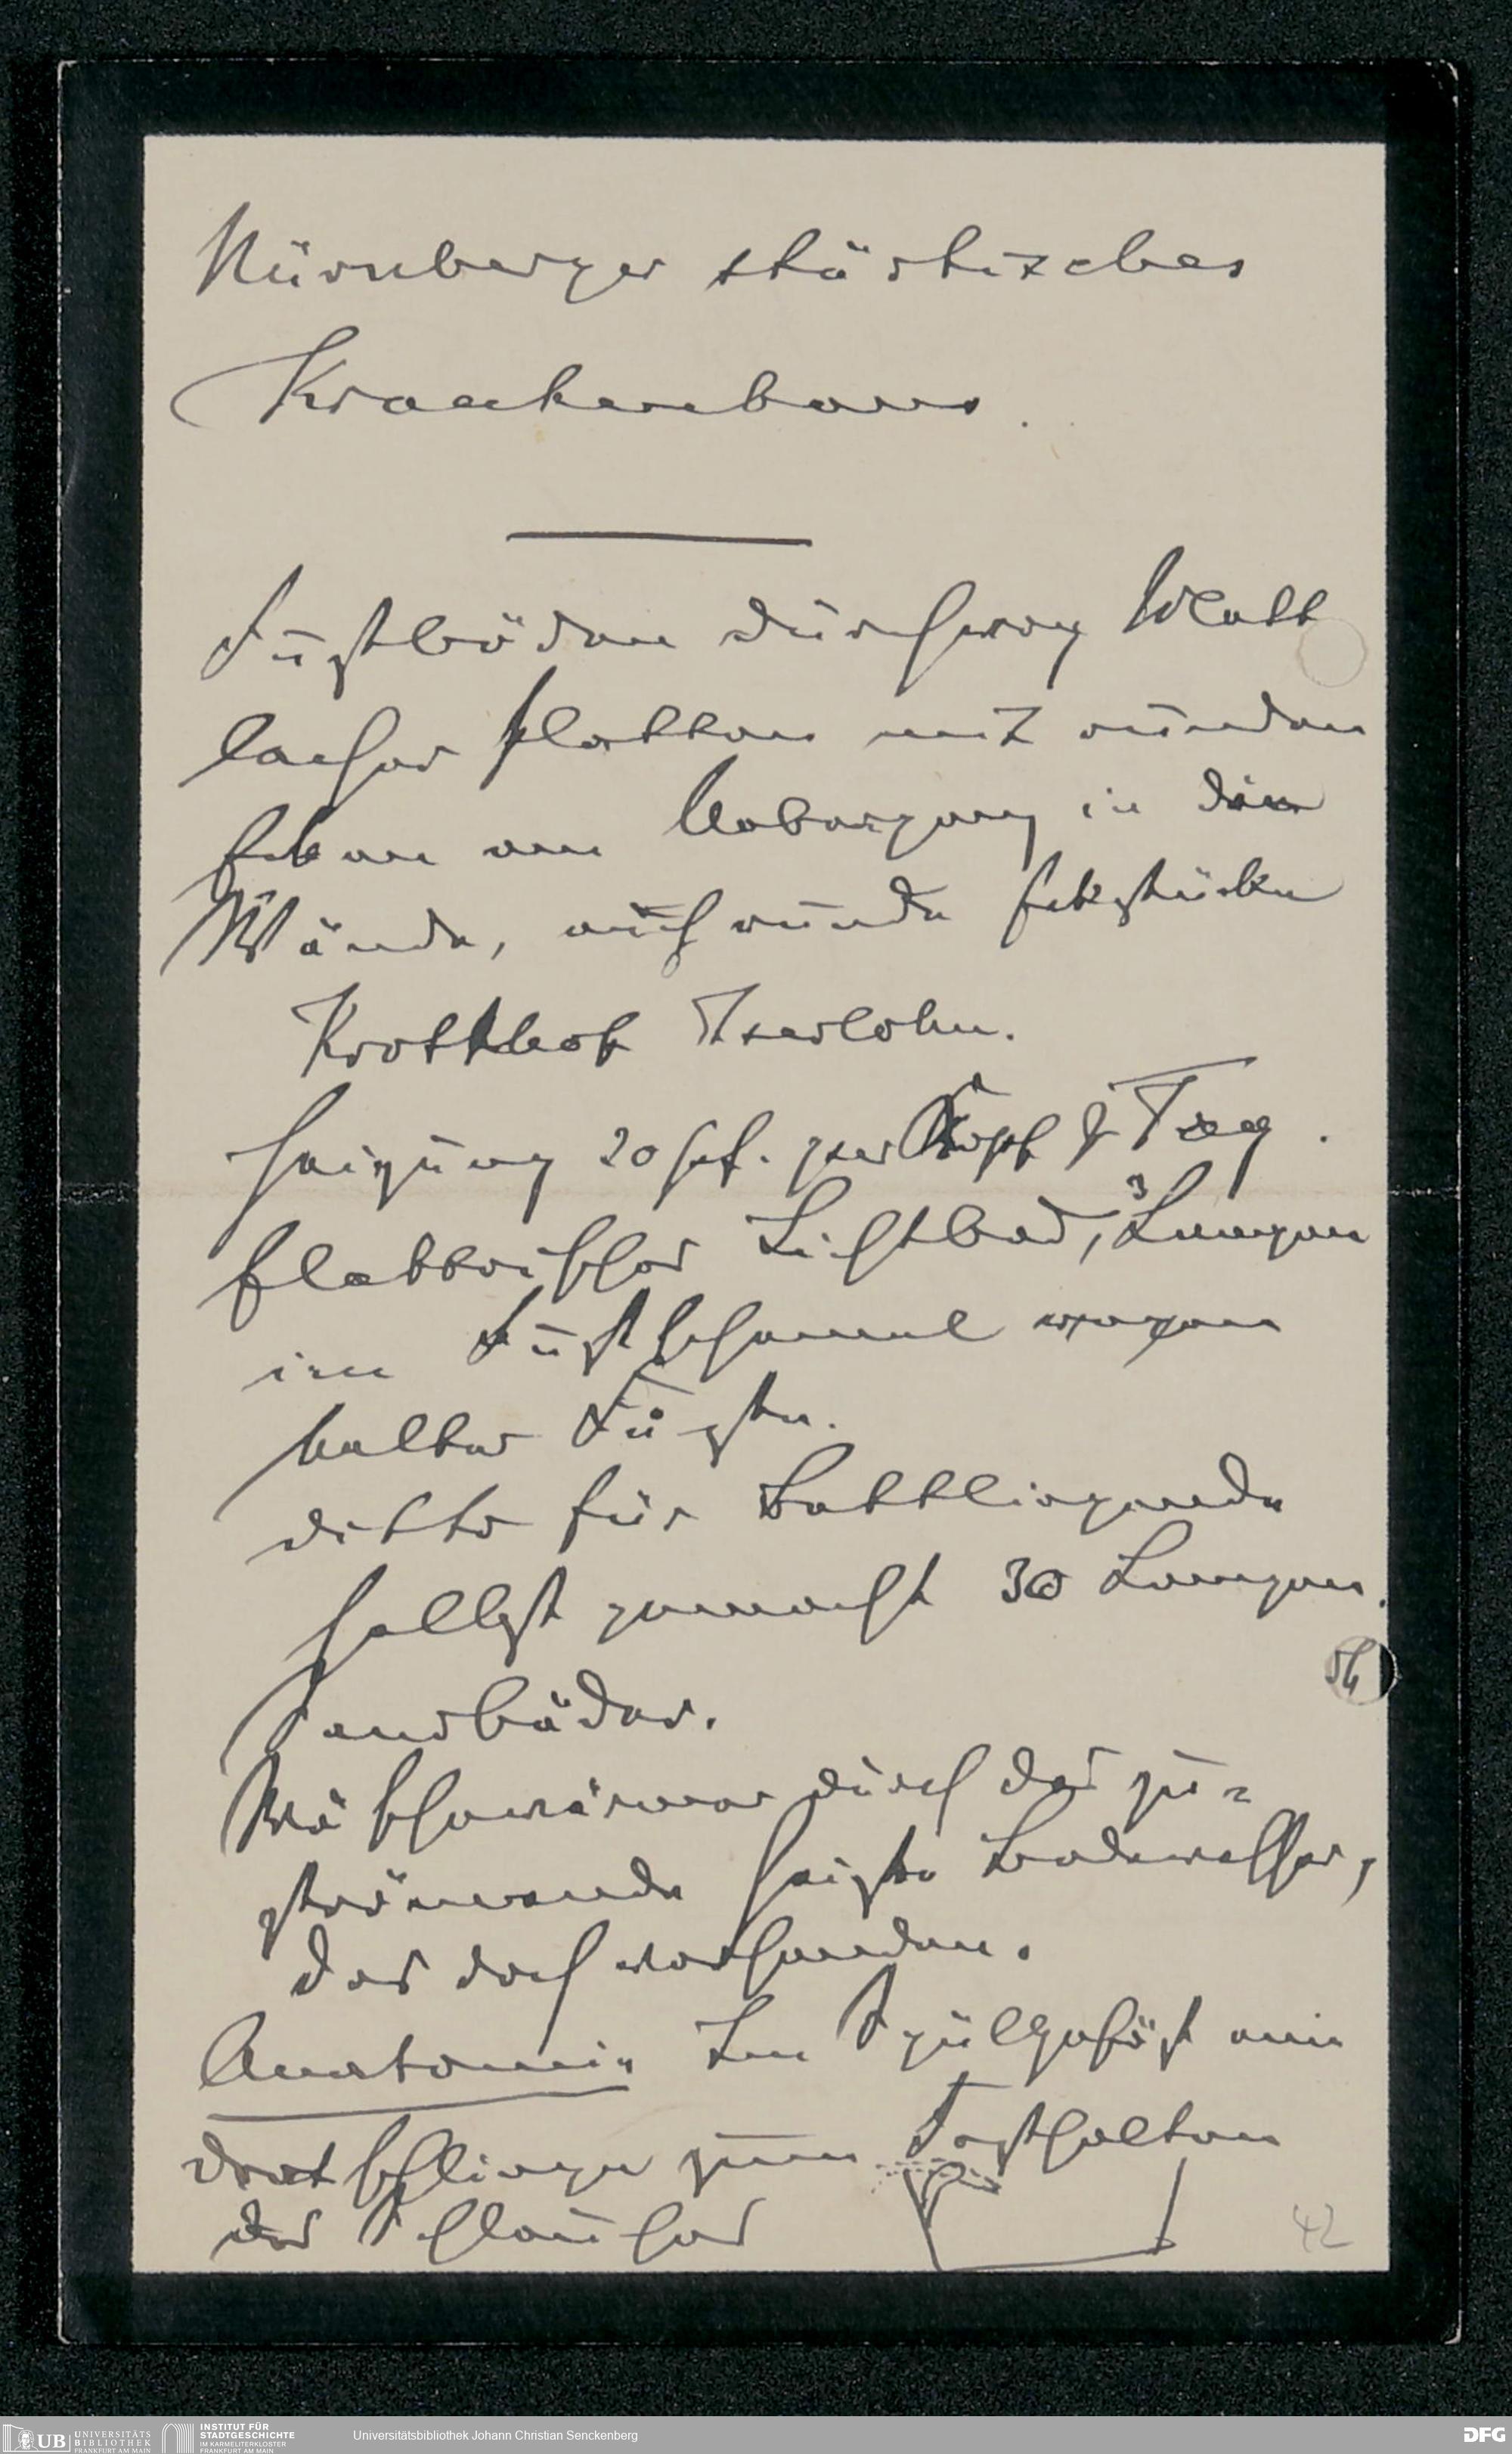 Nürnberger städtisches
Krankenhaus.
Fußböden durchweg Wett
lacher Platten mit runden
Ecken am Uebergang in die
Wände, auch runde Eckstücke
Iserlohn.
Heizung 20 Pf. per Kopf & Tag.
Elektrisches Lichtbad, 3 Lampen
im Fußschemel wegen
kalter Füße.
ditto für Bettliegende
selbst gemacht 30 Lampen.
Sandbäder.
Wäschewärmer durch das zu=
strömende heiße Badewasser,
das doch vorhanden.
Anatomie Im Spülgefäß eine
Dratschlinge zum Festhalten
des Schlauches
42
UB UNIVERSITÄTS
BIBLIOTHEK
FRANKFURT AM MAIN
INSTITUT FÜR
STADTGESCHICHTE
IM KARMELITERKLOSTER
FRANKFURT AM MAIN
Universitätsbibliothek Johann Christian Senckenberg
DFG